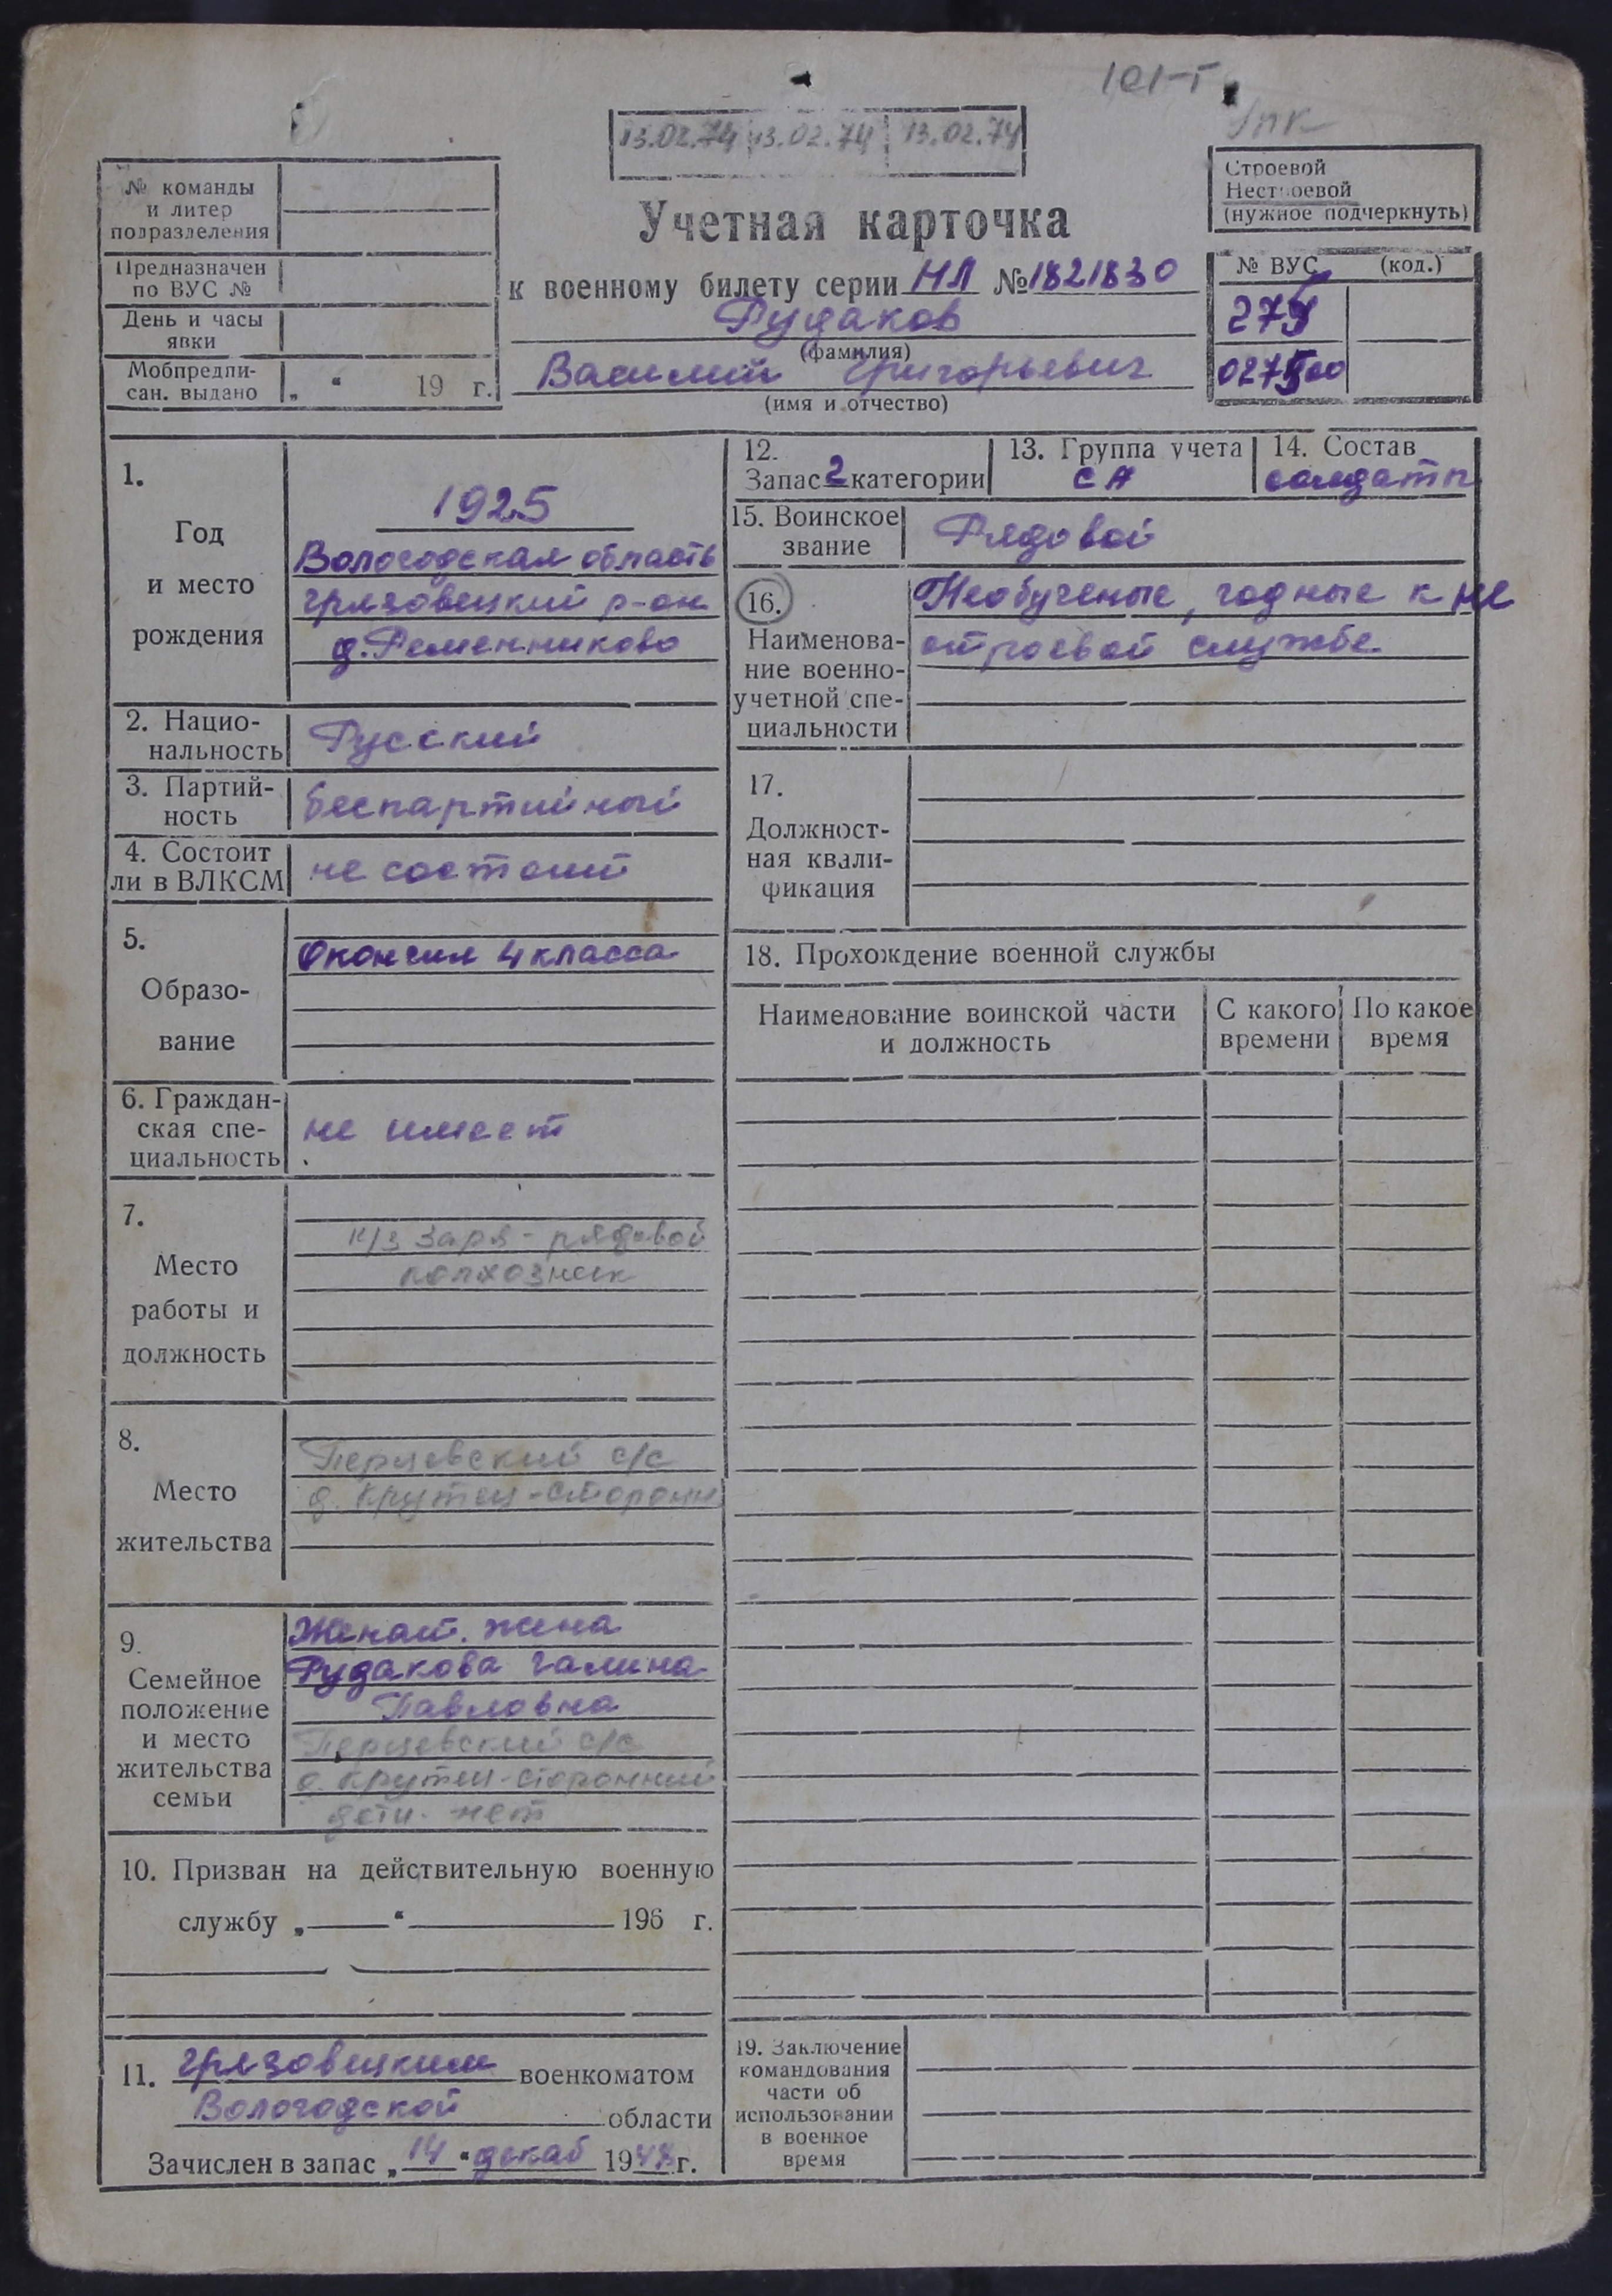 101-Г
13.02.74 13.02.74 13.02.74
№ команды
и литер
подразделения
Предназначен
по ВУС №
День и часы
явки
Мобпредпи-
сан. выдано „ “ 19 г.
Учетная карточка
к военному билету серии НЛ № 1821830
Рудаков
(фамилия)
Василий Григорьевич
(имя и отчество)
Строевой
Нестроевой
(нужное подчеркнуть)
№ ВУС (код.)
1.
Год
и место
рождения
1925
Вологодская область
Грязовецкий р-он
д. Ременниково
2. Нацио-
нальность
Русский
3. Партий-
ность
беспартийный
4. Состоит
ли в ВЛКСМ
не состоит
5.
Образо-
вание
Окончил 4 класса
6. Граждан-
ская спе-
циальность
не имеет
7.
Место
работы и
должность
к/з Заря - рядовой
колхозник
8.
Место
жительства
Перцевский с/с
д. Крутец-Сторонн
9.
Семейное
положение
и место
жительства
семьи
Женат. жена
Рудакова Галина
Павловна
Перцевский с/с
д. Крутец-Сторонний
дети - нет
10. Призван на действительную военную
службу „ “ 196 г.
11. Грязовецким военкоматом
Вологодской области
Зачислен в запас „14“ декаб 19 г.
12.
Запас 2 категории
13. Группа учета
СА
14. Состав
солдаты
15. Воинское
звание
Рядовой
16.
Наименова-
ние военно-
учетной спе-
циальности
Необученые, годные к не
строевой службе
17.
Должност-
ная квали-
фикация
18. Прохождение военной службы
Наименование воинской части
и должность
С какого
времени
По какое
время
19. Заключение
командования
части об
использовании
в военное
время